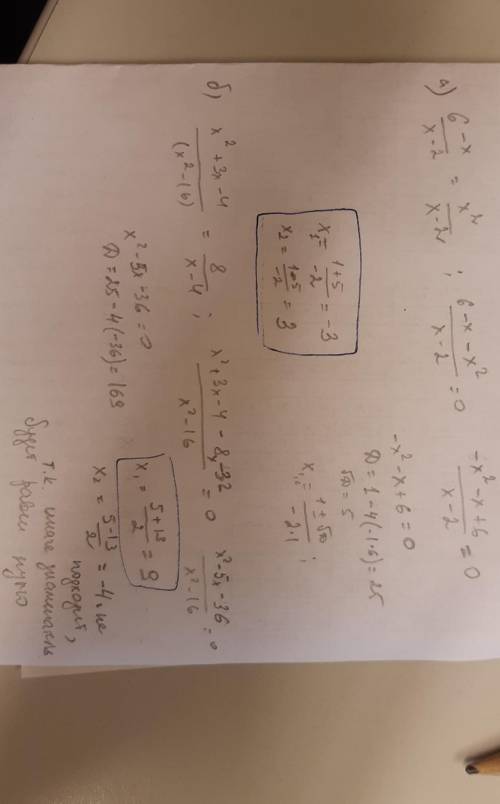 а) (6-x)/(x-2) = x²/(x-2) ; (6-x-x²)/(x-2) = 0 (-x²-x+6)/(x-2) = 0
-x²-x+6=0
D=1-4(-1·6)=25
√D=5
x₁,₂ = (1±√D)/(-2·1) ;
x₁ = (1+5)/-2 = -3
x₂ = (1-5)/-2 = 3
б) (x²+3x-4)/(x²-16) = 8/(x-4) ; (x²+3x-4-8x-32)/(x²-16) = 0 (x²-5x-36)/(x²-16) = 0
x²-5x-36=0
D=25-4(-36)=169
x₁ = (5+13)/2 = 9
x₂ = (5-13)/2 = -4, не
подходит,
т.к. иначе знаменатель
будет равен нулю